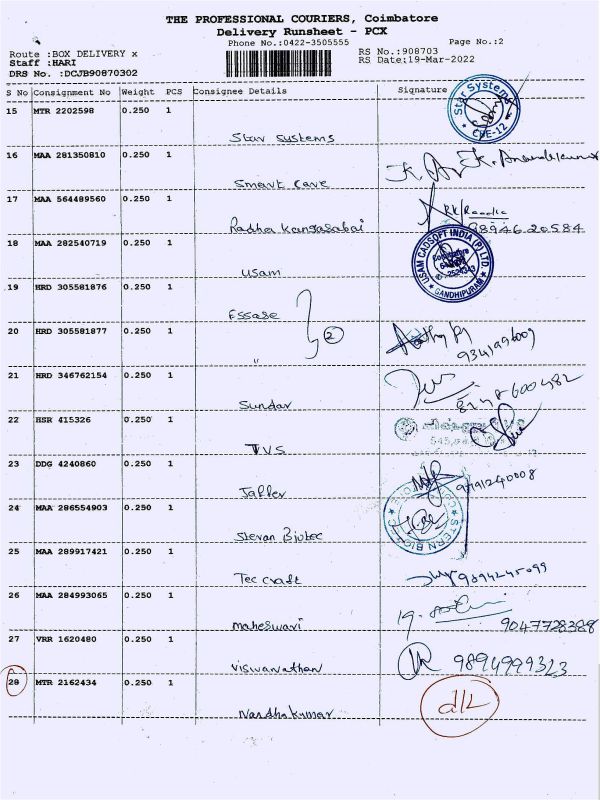 THE PROFESSIONAL COURIERS, Coimbatore
Delivery Runsheet - PCX
Phone No.:0422-3505555
Page No.:2
Route :BOX DELIVERY x
RS No.:908703
Staff :HARI
RS Date:19-Mar-2022
DRS No. :DCJB90870302
S No Consignment No Weight PCS Consignee Details Signature
15 MTR 2202598 0.250 1
Star Systems
Star Systems
CBE-12
16 MAA 281350810 0.250 1
Smart Cave
K. Anandakumar
17 MAA 564489560 0.250 1
Radha Kangasabai
98946 20584
18 MAA 282540719 0.250 1
Usam
USAM CADSOFT INDIA (P) LTD.
GANDHIPURAM
19 HRD 305581876 0.250 1
Essae
2
20 HRD 305581877 0.250 1
"
9341996009
21 HRD 346762154 0.250 1
Sundar
8248600482
22 HSR 415326 0.250 1
TVS
23 DDG 4240860 0.250 1
Jaffer
9791240008
24 MAA 286554903 0.250 1
Stevan Biotec
25 MAA 289917421 0.250 1
Tec craft
9894245099
26 MAA 284993065 0.250 1
Maheswari
9047728388
27 VRR 1620480 0.250 1
Viswanathan
9894999323
28 MTR 2162434 0.250 1
Nandhakumar
d/L